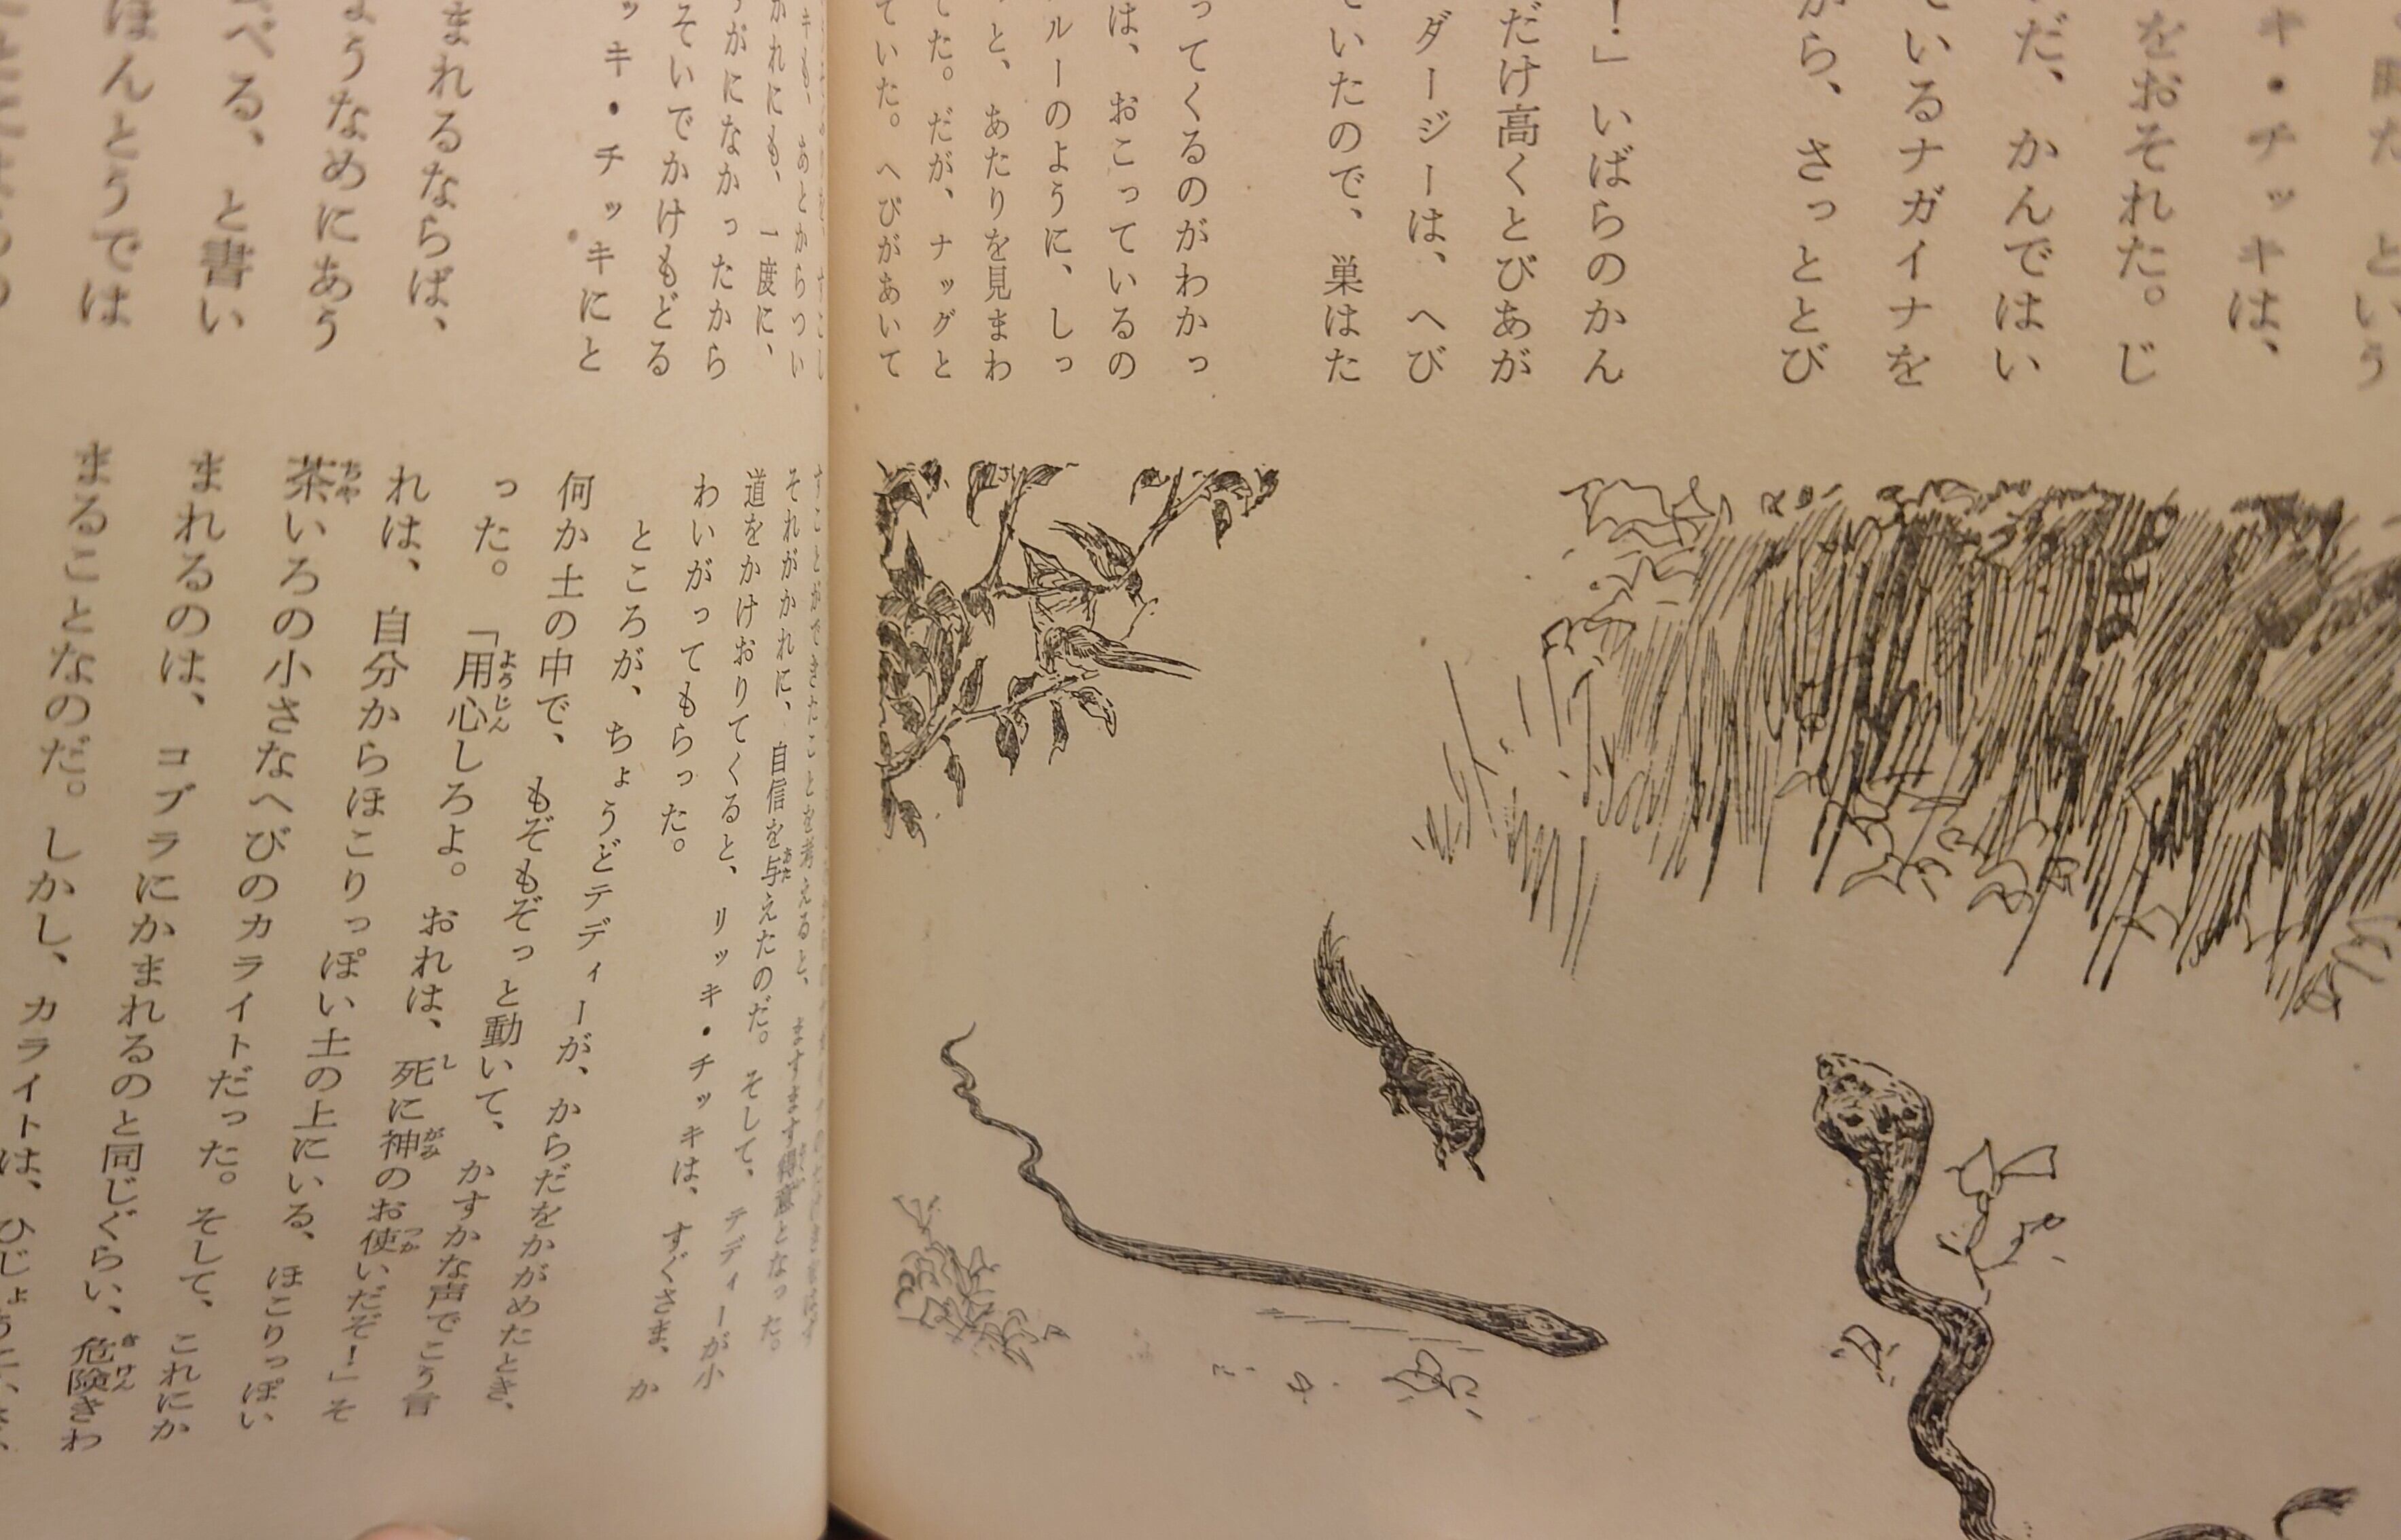 をおそれた。じ
だ、かんではい
いるナガイナを
から、さっととび
！」いばらのかん
だけ高くとびあが
ダージーは、へび
ていたので、巣はた
ってくるのがわかっ
は、おこっているの
ルーのように、しっ
と、あたりを見まわ
てた。だが、ナッグと
ていた。へびがあいて
キも、あとからつい
かれにも、一度に、
がになかったから
そいでかけもどる
ッキ・チッキにと
まれるならば、
ようなめにあう
べる、と書い
ほんとうでは
それがかれに、自信を与えたのだ。そして、テディーが小
道をかけおりてくると、リッキ・チッキは、すぐさま、か
わいがってもらった。
ところが、ちょうどテディーが、からだをかがめたとき、
何か土の中で、もぞもぞっと動いて、かすかな声でこう言
った。「用心しろよ。おれは、死に神のお使いだぞ！」そ
れは、自分からほこりっぽい土の上にいる、ほこりっぽい
茶いろの小さなへびのカライトだった。そして、これにか
まれるのは、コブラにかまれるのと同じぐらい、危険きわ
まることなのだ。しかし、カライトは、ひじょ